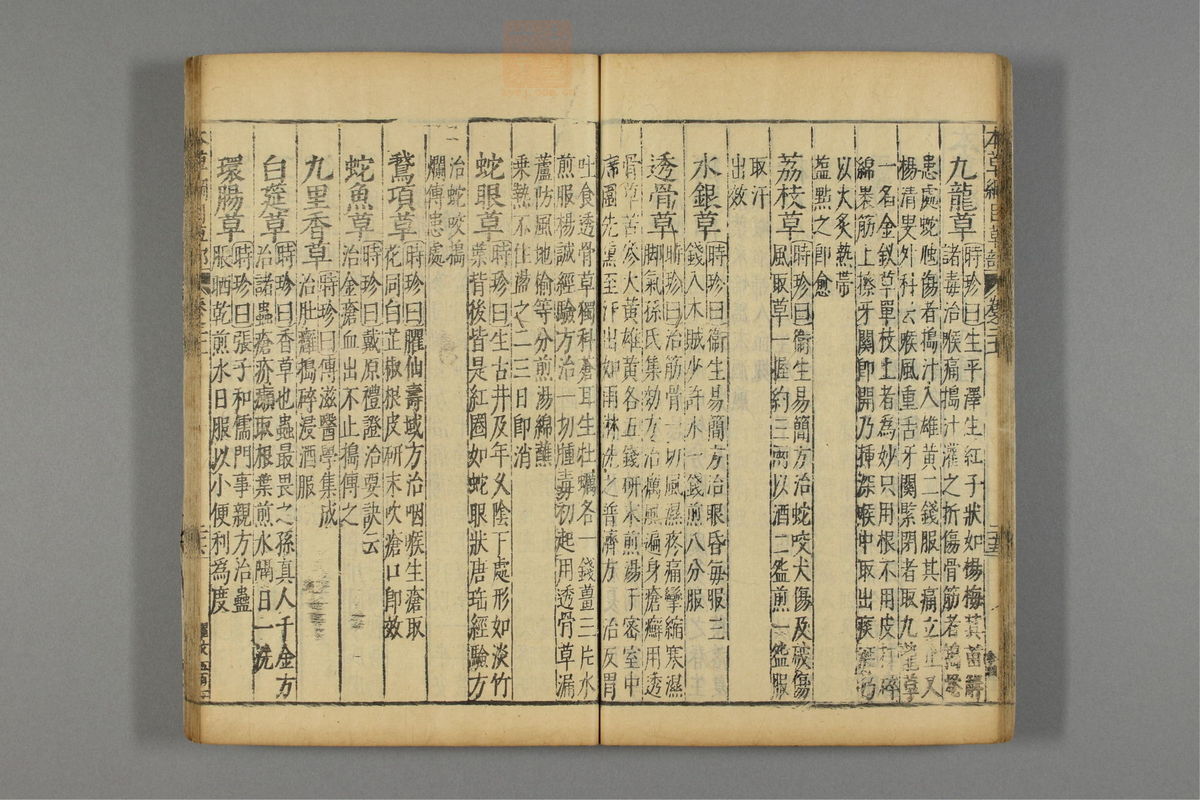 九龍草
時珍曰生平澤生紅子狀如楊梅其苗解
諸毒治喉痛搗汁灌之折傷骨筋者搗罨
患處蛇虺傷者搗汁入雄黃二錢服其痛立止又
楊清叟外科云喉風重舌牙關緊閉者取九龍草
一名金釵草單枝上者為妙只用根不用皮打碎
綿裹筋上擦牙關即開乃插深喉中取出痰涎乃
以火炙熱帶
鹽點之即愈
荔枝草
時珍曰衛生易簡方治蛇咬犬傷及破傷
風取草一握約三兩以酒二盌煎一盌服
取汗
出效
水銀草
時珍曰衛生易簡方治眼昏每服三
錢入木賊少許水一錢煎八分服
透骨草
時珍曰治筋骨一切風濕疼痛攣縮寒濕
脚氣孫氏集効方治癘風遍身瘡癬用透
骨草苦參大黃雄黃各五錢研末煎湯于密室中
席圍先熏至汗出如雨淋洗之普濟方治反胃
吐食透骨草獨科蒼耳生牡蠣各一錢薑三片水
煎服楊誠經驗方治一切腫毒初起用透骨草漏
蘆防風地榆等分煎湯綿蘸
乗熱不住盪之二三日即消
蛇眼草
時珍曰生古井及年久陰下處形如淡竹
葉背後皆是紅圈如蛇眼狀唐瑤經驗方
治蛇咬搗
爛傅患處
鵞項草
時珍曰臞仙壽域方治咽喉生瘡取
花同白芷椒根皮研末吹瘡口即效
蛇魚草
時珍曰戴原禮證治要訣云
治金瘡血出不止搗傅之
九里香草
時珍曰傅滋醫學集成
治肚癰搗碎浸酒服
白筵草
時珍曰香草也蟲最畏之孫真人千金方
治諸蟲瘡疥癩取根葉煎水隔日一洗
環腸草
時珍曰張子和儒門事親方治蠱
脹晒乾煎水日服以小便利為度